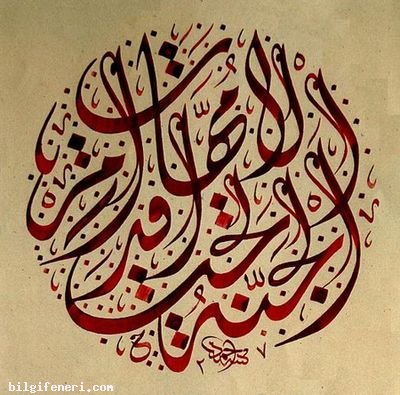 الجنة تحت اقدام الامهات
bilgifeneri.com